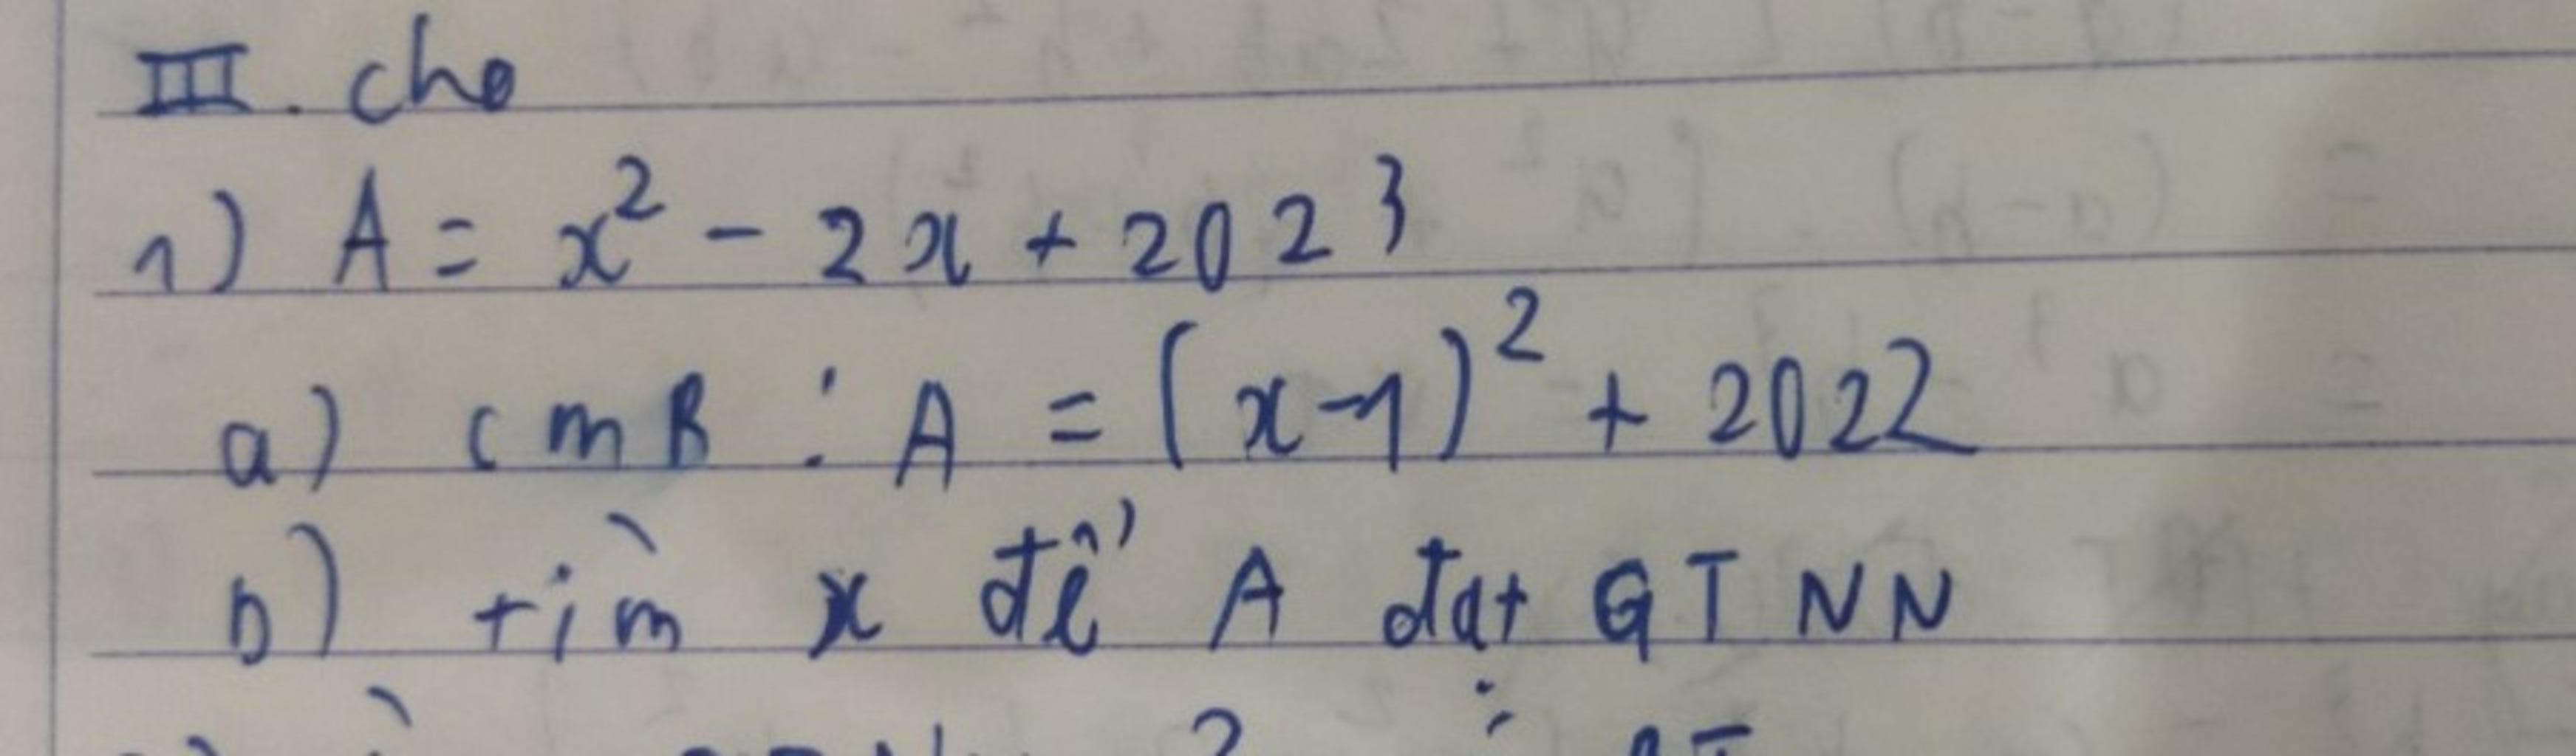 III. cho
1) A = x² - 2x + 2023
a) cmR : A = (x-1)² + 2022
b) tìm x để A đạt GTNN